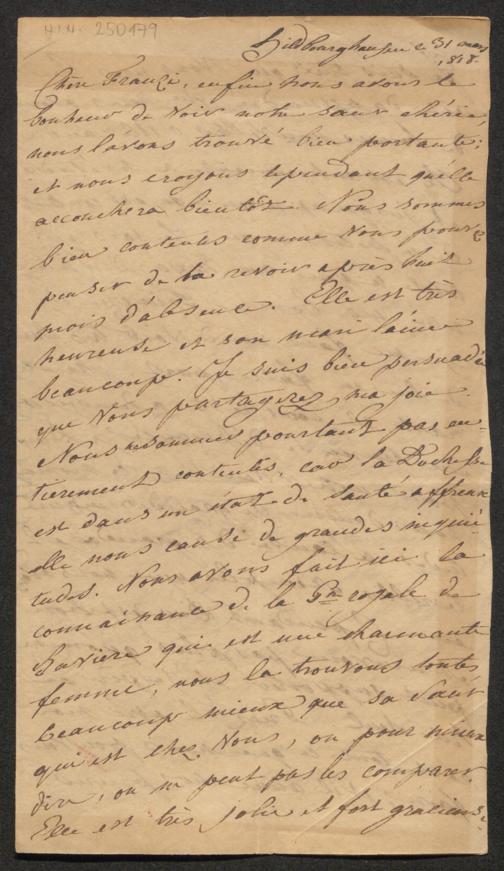 H.I.N. 250179
Hildbourghausen ce 31 mars
1818.
Chère Franzi, enfin nous avons le
bonheur de voir notre sœur chérie,
nous l'avons trouvé bien portante;
et nous croyons cependant qu'elle
accouchera bientôt. Nous sommes
bien contentes comme Vous pouvez
penser de la revoir après huit
mois d'absence. Elle est très
heureuse et son mari l'aime
beaucoup. Je suis bien persuadée
que Vous partagerez ma joie.
Nous ne sommes pourtant pas en
tierement contentes, car la Duchesse
est dans un état de santé affreux
elle nous cause de grandes inquié
tudes. Nous avons fait ici la
connaissance de la Pss. royale de
Bavière qui est une charmante
femme, nous la trouvons toutes
beaucoup mieux que sa Sœur
qui est chez Vous, ou pour mieux
dire, on ne peut pas les comparer.
Elle est très jolie et fort gracieuse